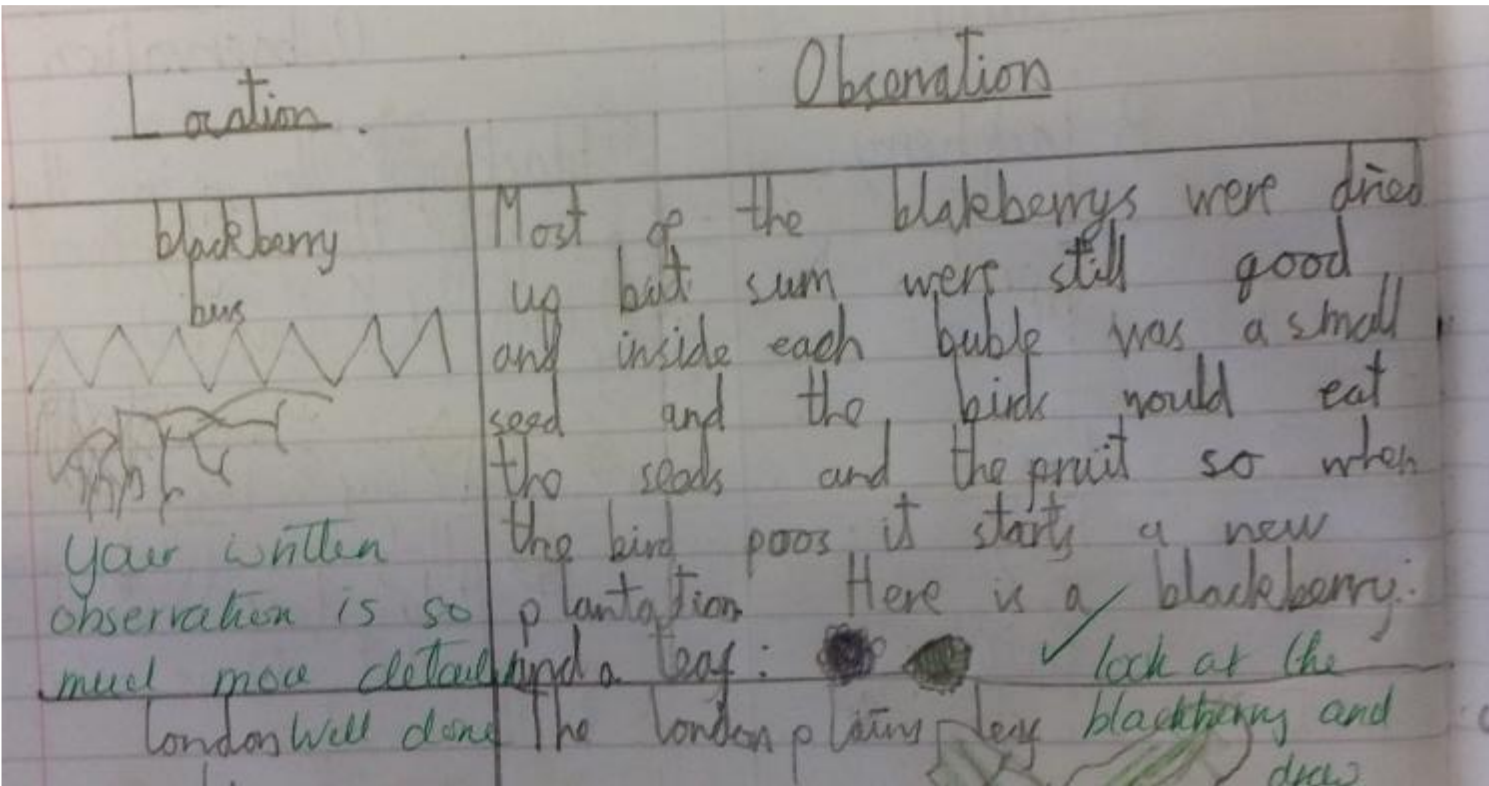 Location.
Observation
blackberry
bus
Most of the blakberrys were dried
up but sum were still good
and inside each buble was a small
seed and the birds would eat
the seeds and the fruit so when
the bird poos it starts a new
plantation Here is a blackberry:
and a leaf:
your written
observation is so
much more detailed
Well done
✓ look at the
blackberry and
draw
london
The london leaf